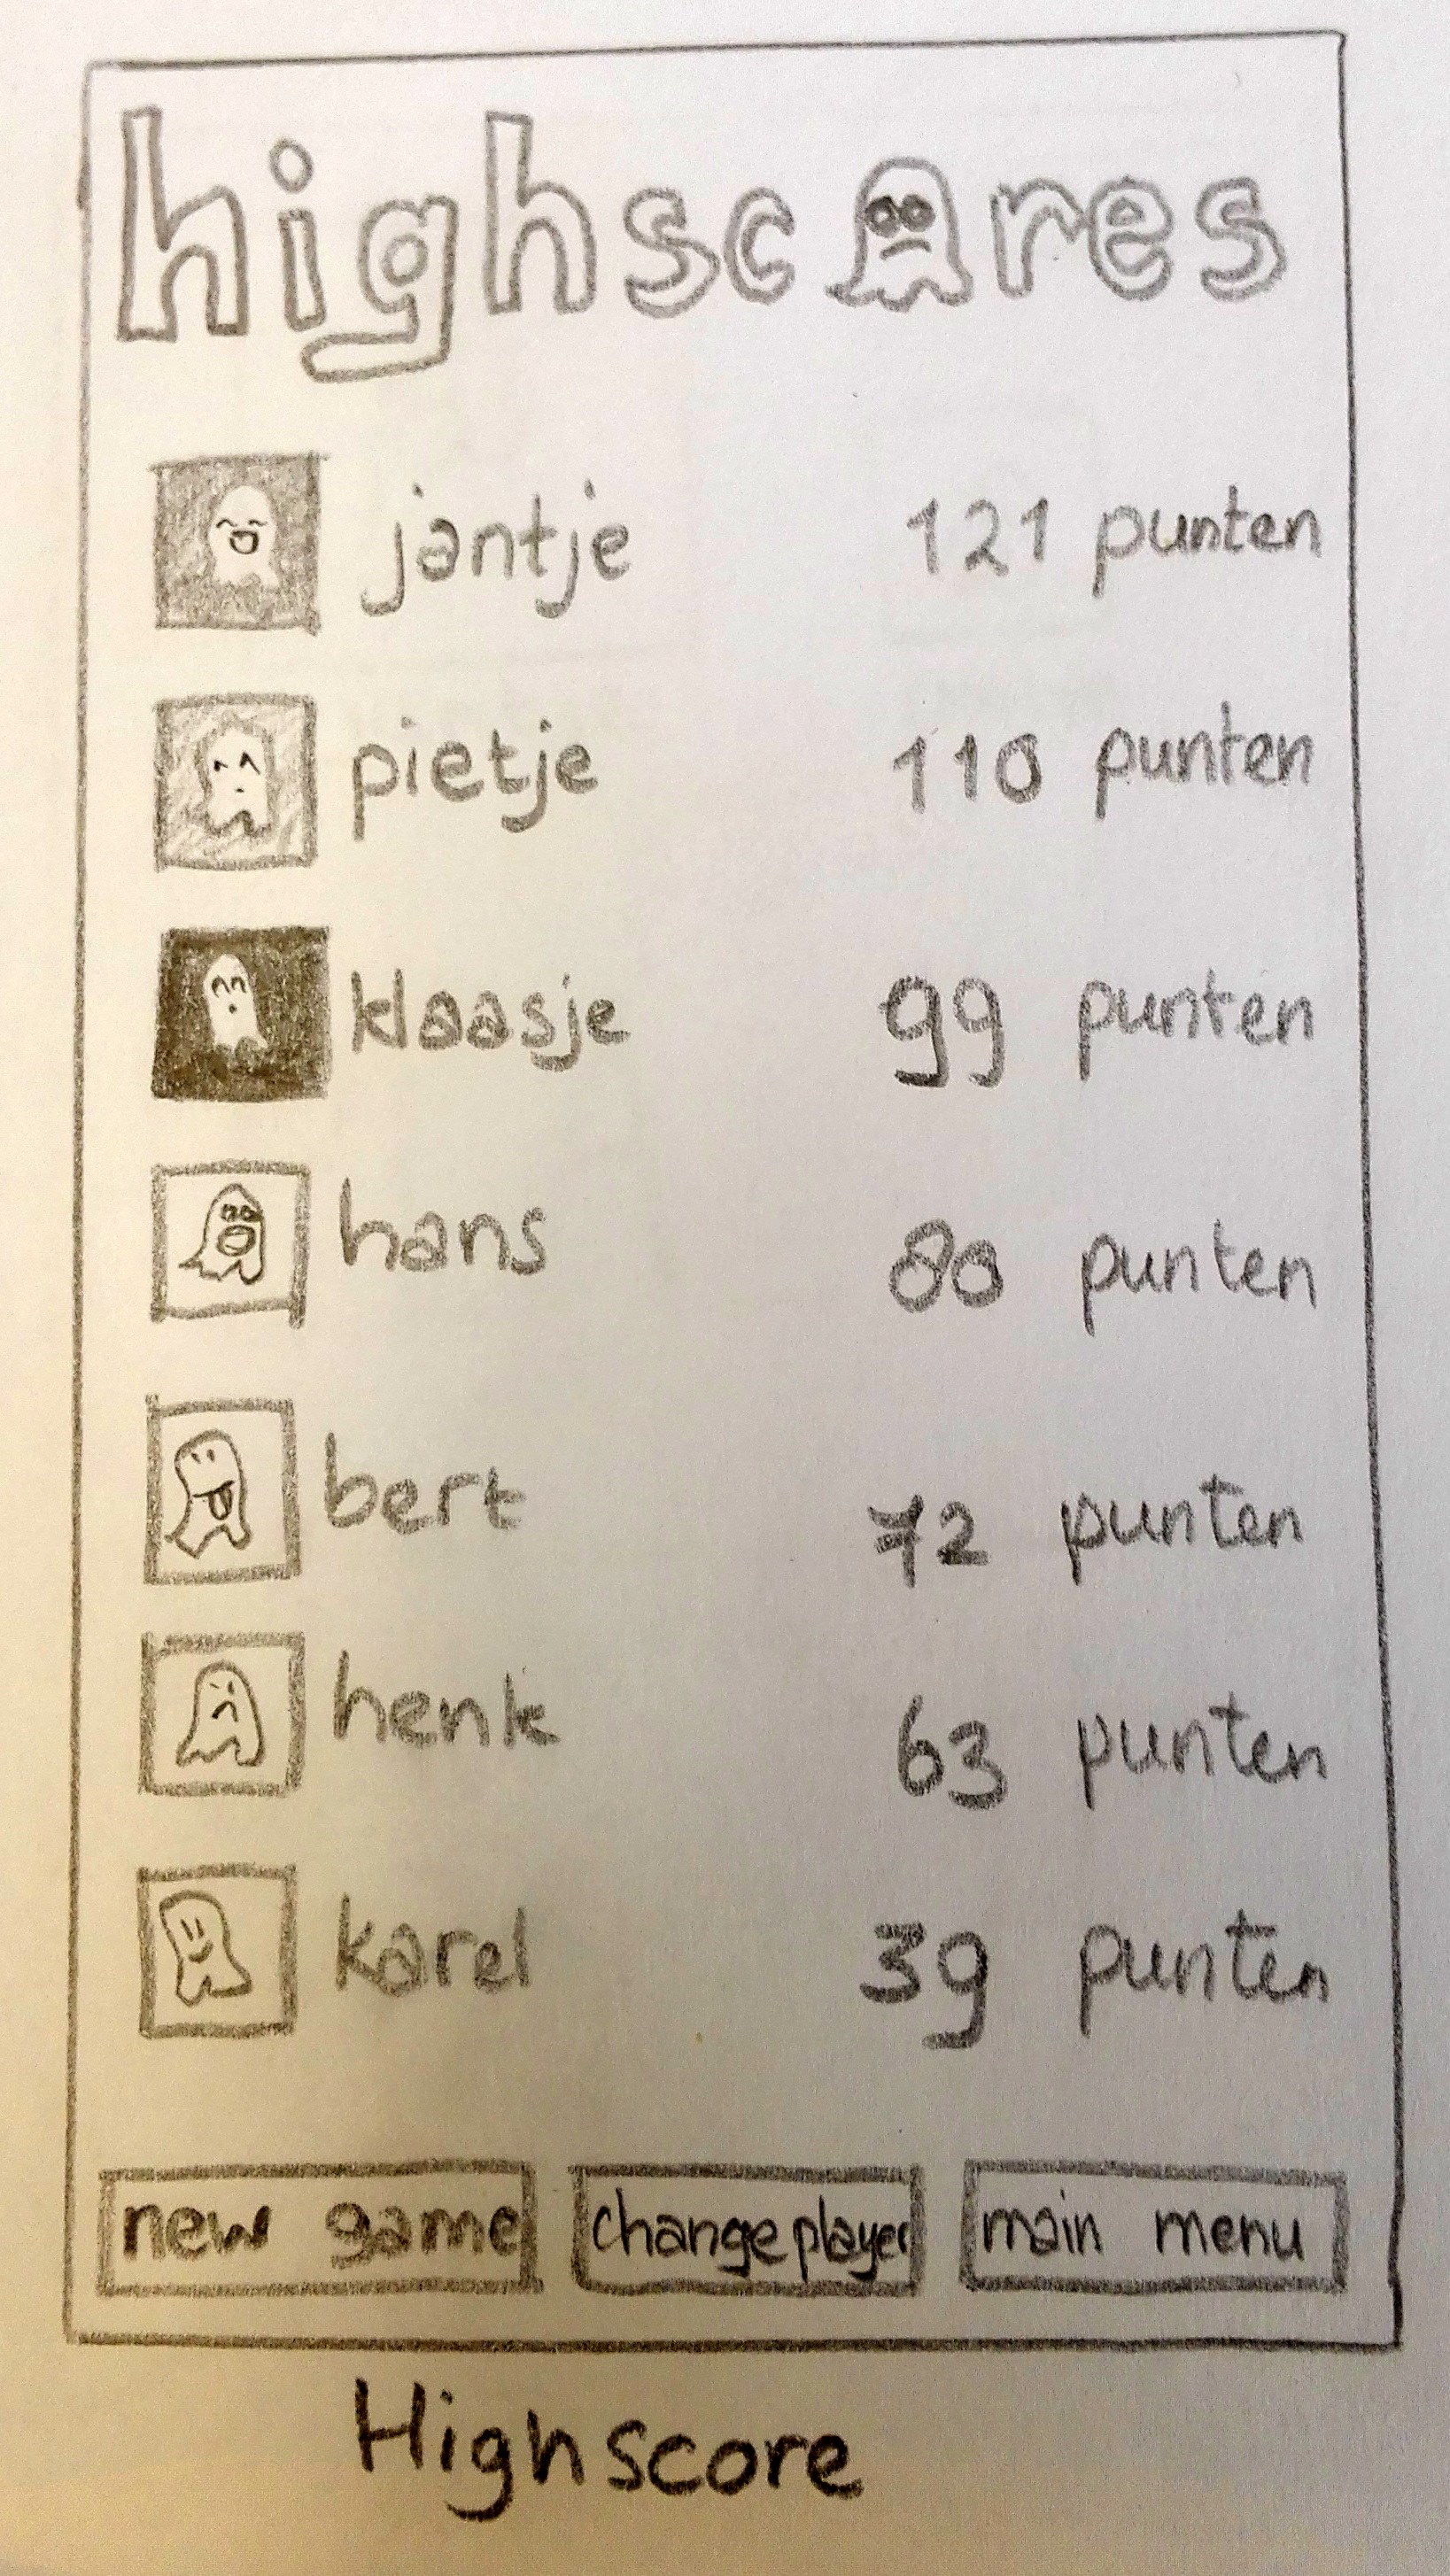 highscores
jantje 121 punten
pietje 110 punten
klaasje 99 punten
hans 80 punten
bert 72 punten
henk 63 punten
karel 39 punten
new game change player main menu
Highscore